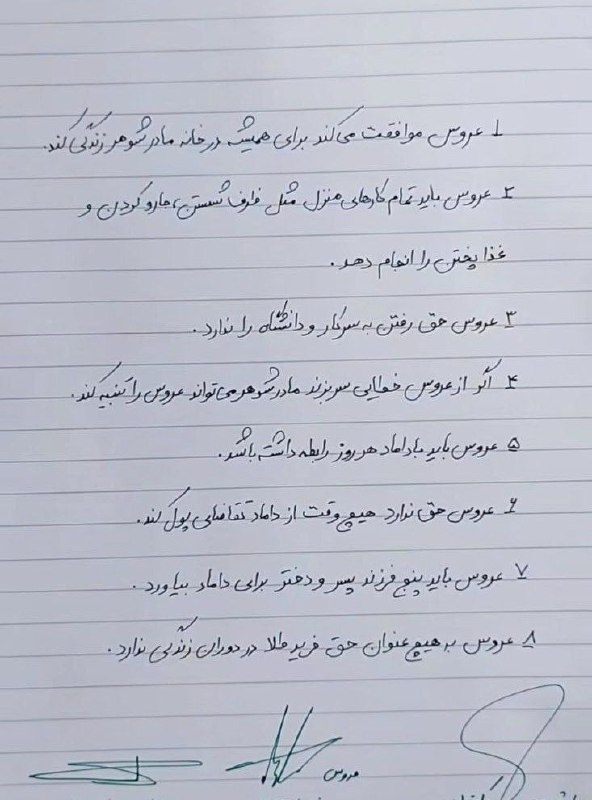 ۱ عروس موافقت می‌کند برای همیشه در خانه مادر شوهر زندگی کند.
۲ عروس باید تمام کارهای منزل مثل ظرف شستن، جارو کردن و
غذا پختن را انجام دهد.
۳ عروس حق رفتن به سر کار و دانشگاه را ندارد.
۴ اگر از عروس خطایی سر بزند مادر شوهر می‌تواند عروس را تنبیه کند.
۵ عروس باید با داماد هر روز رابطه داشته باشد.
۶ عروس حق ندارد هیچ وقت از داماد تقاضای پول کند.
۷ عروس باید پنج فرزند پسر و دختر برای داماد بیاورد.
۸ عروس به هیچ عنوان حق خرید طلا در دوران زندگی ندارد.
عروس